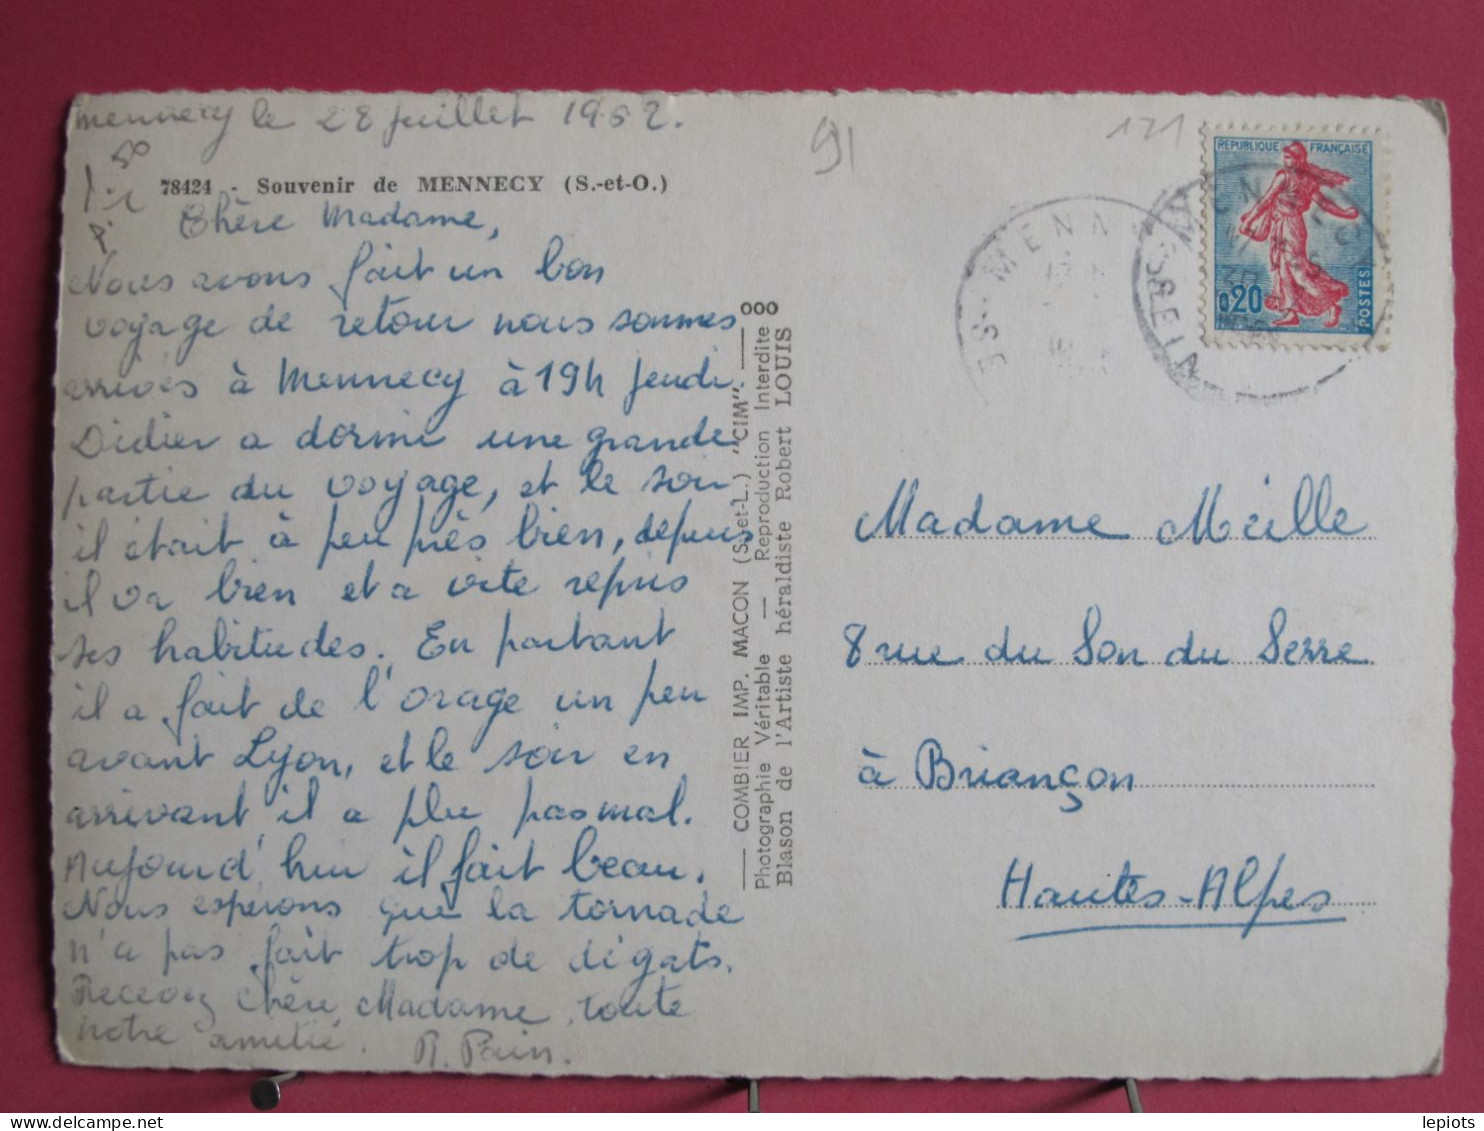 Mennecy le 28 juillet 1962.
78424 - Souvenir de MENNECY (S.-et-O.)
Chère Madame,
Nous avons fait un bon
voyage de retour nous sommes
arrivés à Mennecy à 19h jeudi.
Didier a dormi une grande
partie du voyage, et le soir
il était à peu près bien, depuis
il va bien et a vite repris
ses habitudes. En partant
il a fait de l'orage un peu
avant Lyon, et le soir en
arrivant il a plu pas mal.
Aujourd'hui il fait beau.
Nous espérons que la tornade
n'a pas fait trop de dégats.
Recevez Chère Madame toute
notre amitié. R. Pain.
COMBIER IMP. MACON (S.-et-L.) "CIM".
Photographie Véritable — Reproduction Interdite
Blason de l'Artiste héraldiste Robert LOUIS
ooo
91
121
50
REPUBLIQUE FRANÇAISE
0,20
POSTES
Madame Meille
8 rue du Son du Serre
à Briançon
Hautes-Alpes
lepiots